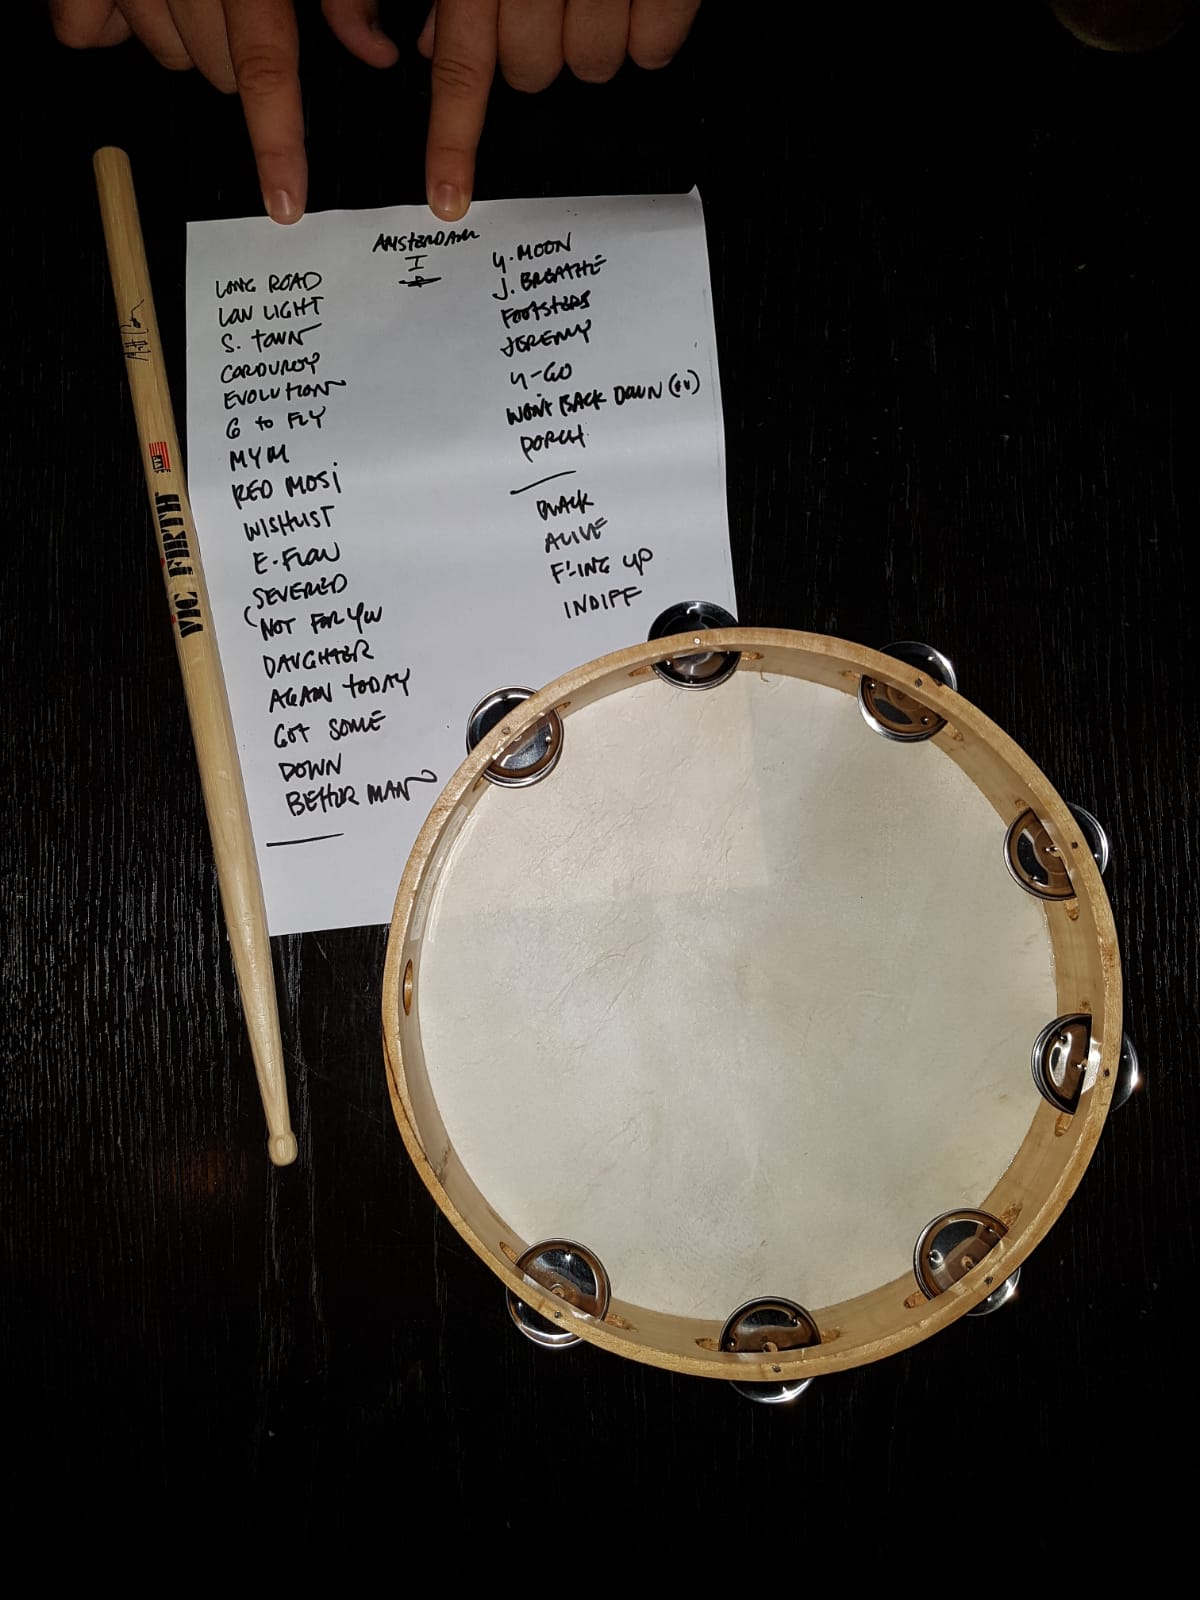 AMSTERDAM
I
LONG ROAD
LOW LIGHT
S. TOWN
CORDUROY
EVOLUTION
G to FLY
MYM
RED MOSi
WISHLIST
E. FLOW
SEVERED
NOT FOR YOU
DAUGHTER
AGAIN TODAY
GOT SOME
DOWN
BETTER MAN
Y. MOON
J. BREATHE
FOOTSTEPS
JEREMY
Y-GO
WON'T BACK DOWN (EV)
PORCH
BLACK
ALIVE
F'-ING UP
INDIFF
VIC FIRTH